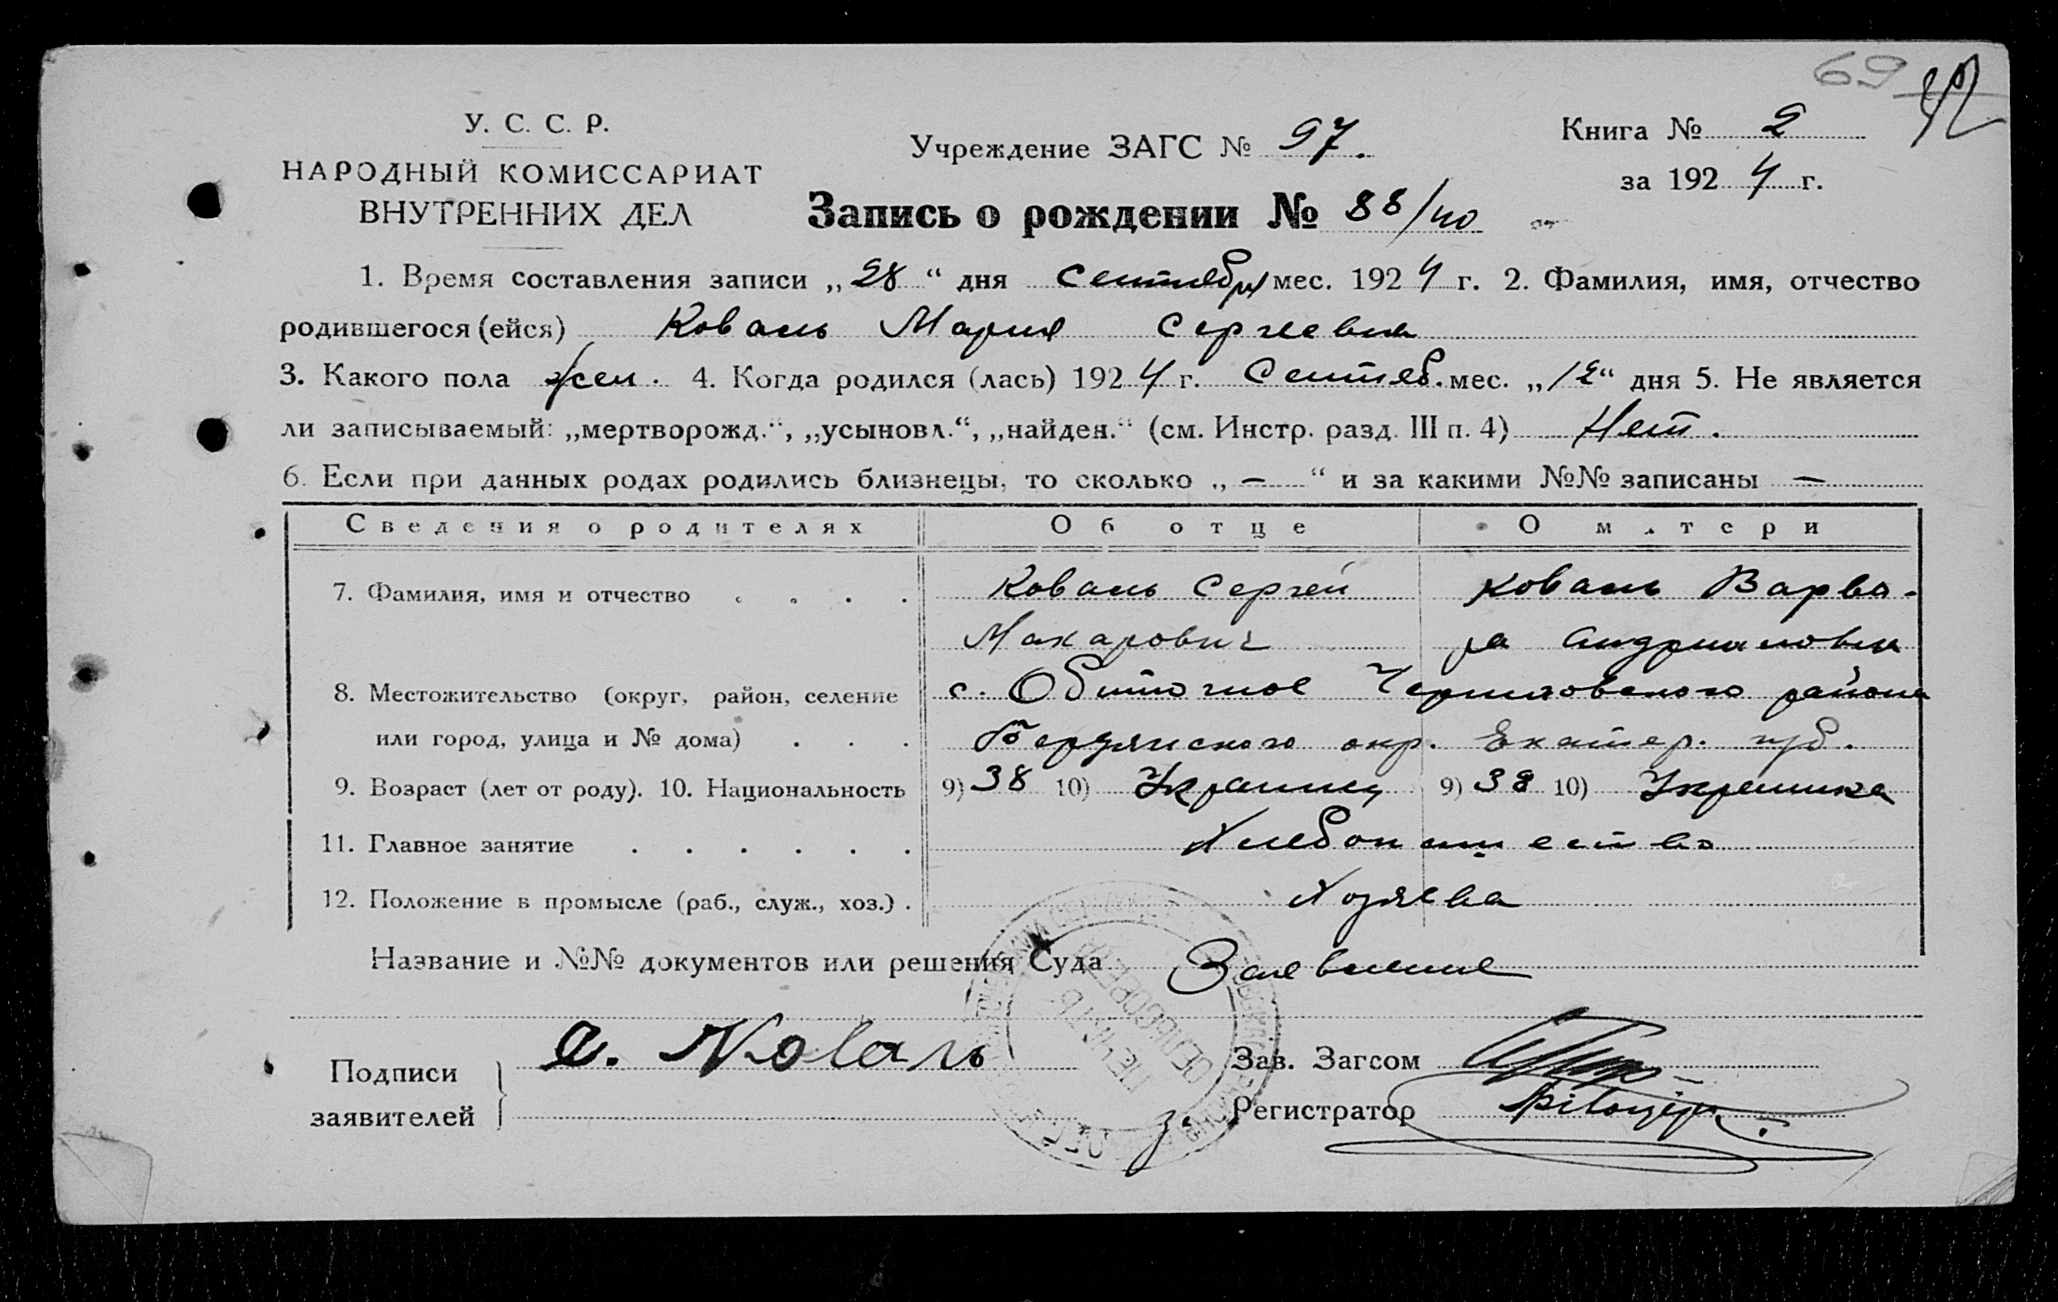 69 42
У. С. С. Р.
НАРОДНЫЙ КОМИССАРИАТ
ВНУТРЕННИХ ДЕЛ
Учреждение ЗАГС № 97.
Книга № 2
за 1924 г.
Запись о рождении № 88/40
1. Время составления записи „28“ дня Сентября мес. 1924 г. 2. Фамилия, имя, отчество
родившегося (ейся) Коваль Мария Сергеевна
3. Какого пола жен. 4. Когда родился (лась) 1924 г. Сентяб. мес. „12“ дня 5. Не является
ли записываемый: „мертворожд.“, „усыновл.“, „найден.“ (см. Инстр. разд. III п. 4) Нет.
6. Если при данных родах родились близнецы, то сколько „ — “ и за какими №№ записаны —
Сведения о родителях Об отце О м.тери
7. Фамилия, имя и отчество . . . . Коваль Сергей Коваль Варва-
Макарович ра Андриановна
8. Местожительство (округ, район, селение с. Обиточное Черниговского района
или город, улица и № дома) . . . Бердянского окр. Екатер. губ.
9. Возраст (лет от роду). 10. Национальность 9) 38 10) Украинец 9) 38 10) Украинка
11. Главное занятие . . . . . . Хлебопашество
12. Положение в промысле (раб., служ., хоз.) . Хозяева
Название и №№ документов или решения Суда Заявление
Подписи
заявителей
С. Коваль
Зав. Загсом
з. Регистратор
ПЕЧАТЬ